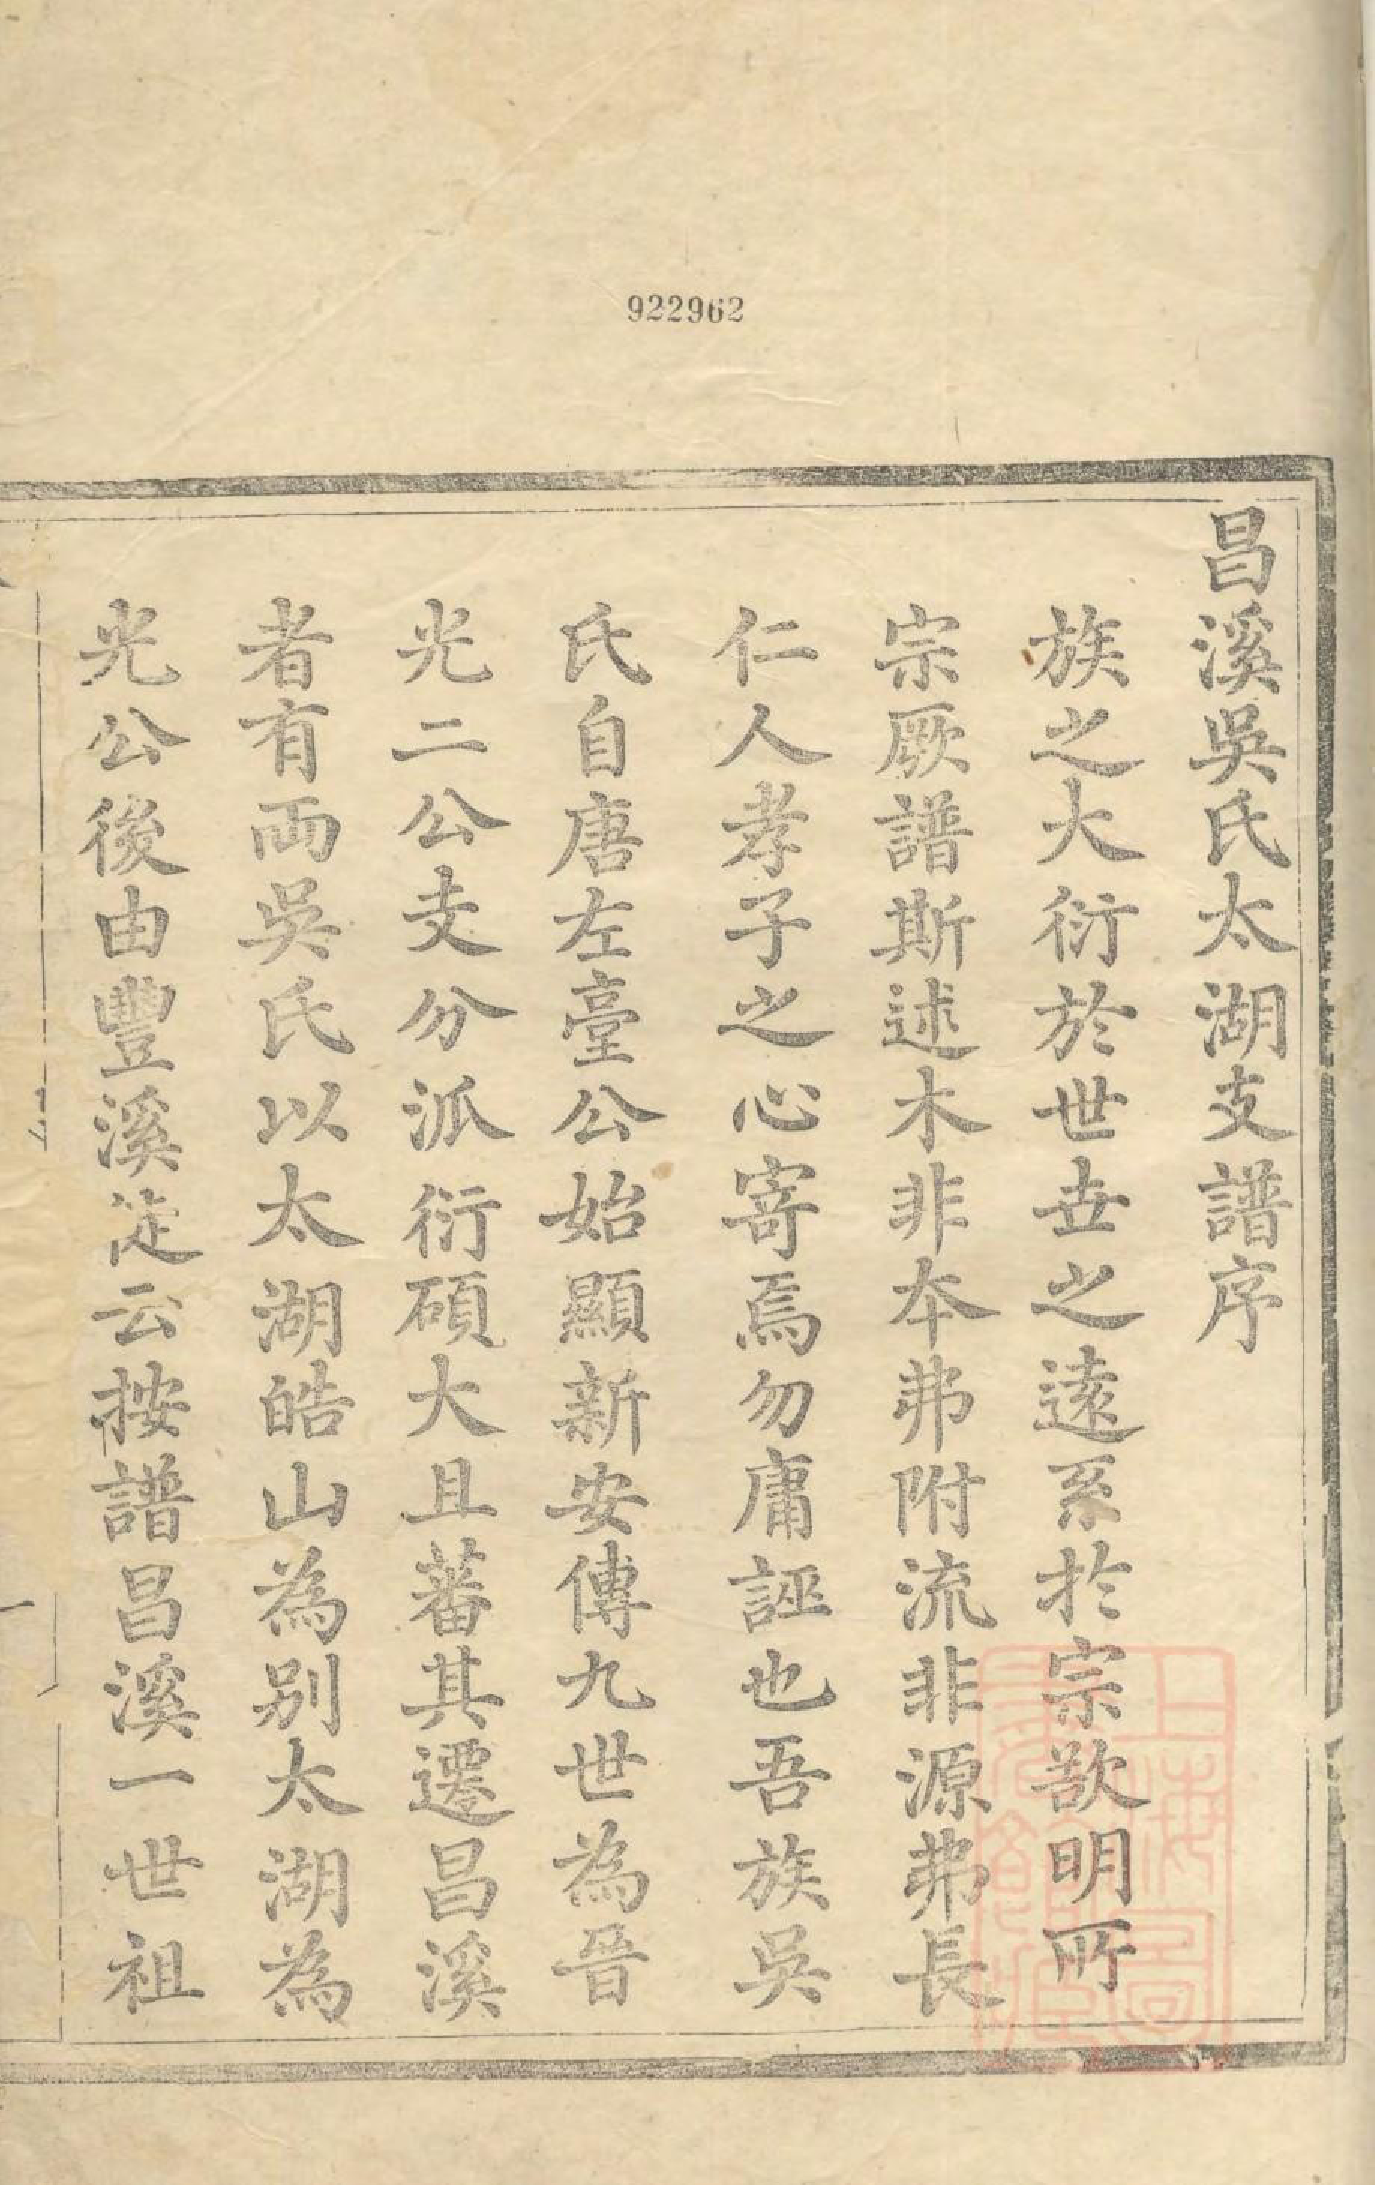 922962
昌溪吳氏太湖支譜序
族之大衍於世世之遠系於宗欲明所
宗厥譜斯述木非本弗附流非源弗長
仁人孝子之心寄焉勿庸誣也吾族吳
氏自唐左臺公始顯新安傳九世為晉
光二公支分派衍碩大且蕃其遷昌溪
者有両吳氏以太湖皓山為别太湖為
光公後由豐溪徙云按譜昌溪一世祖
上海圖